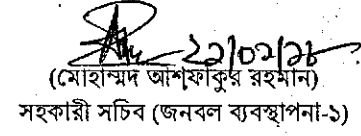 (মোহাম্মদ আশফাকুর রহমান)
সহকারী সচিব (জনবল ব্যবস্থাপনা-১)